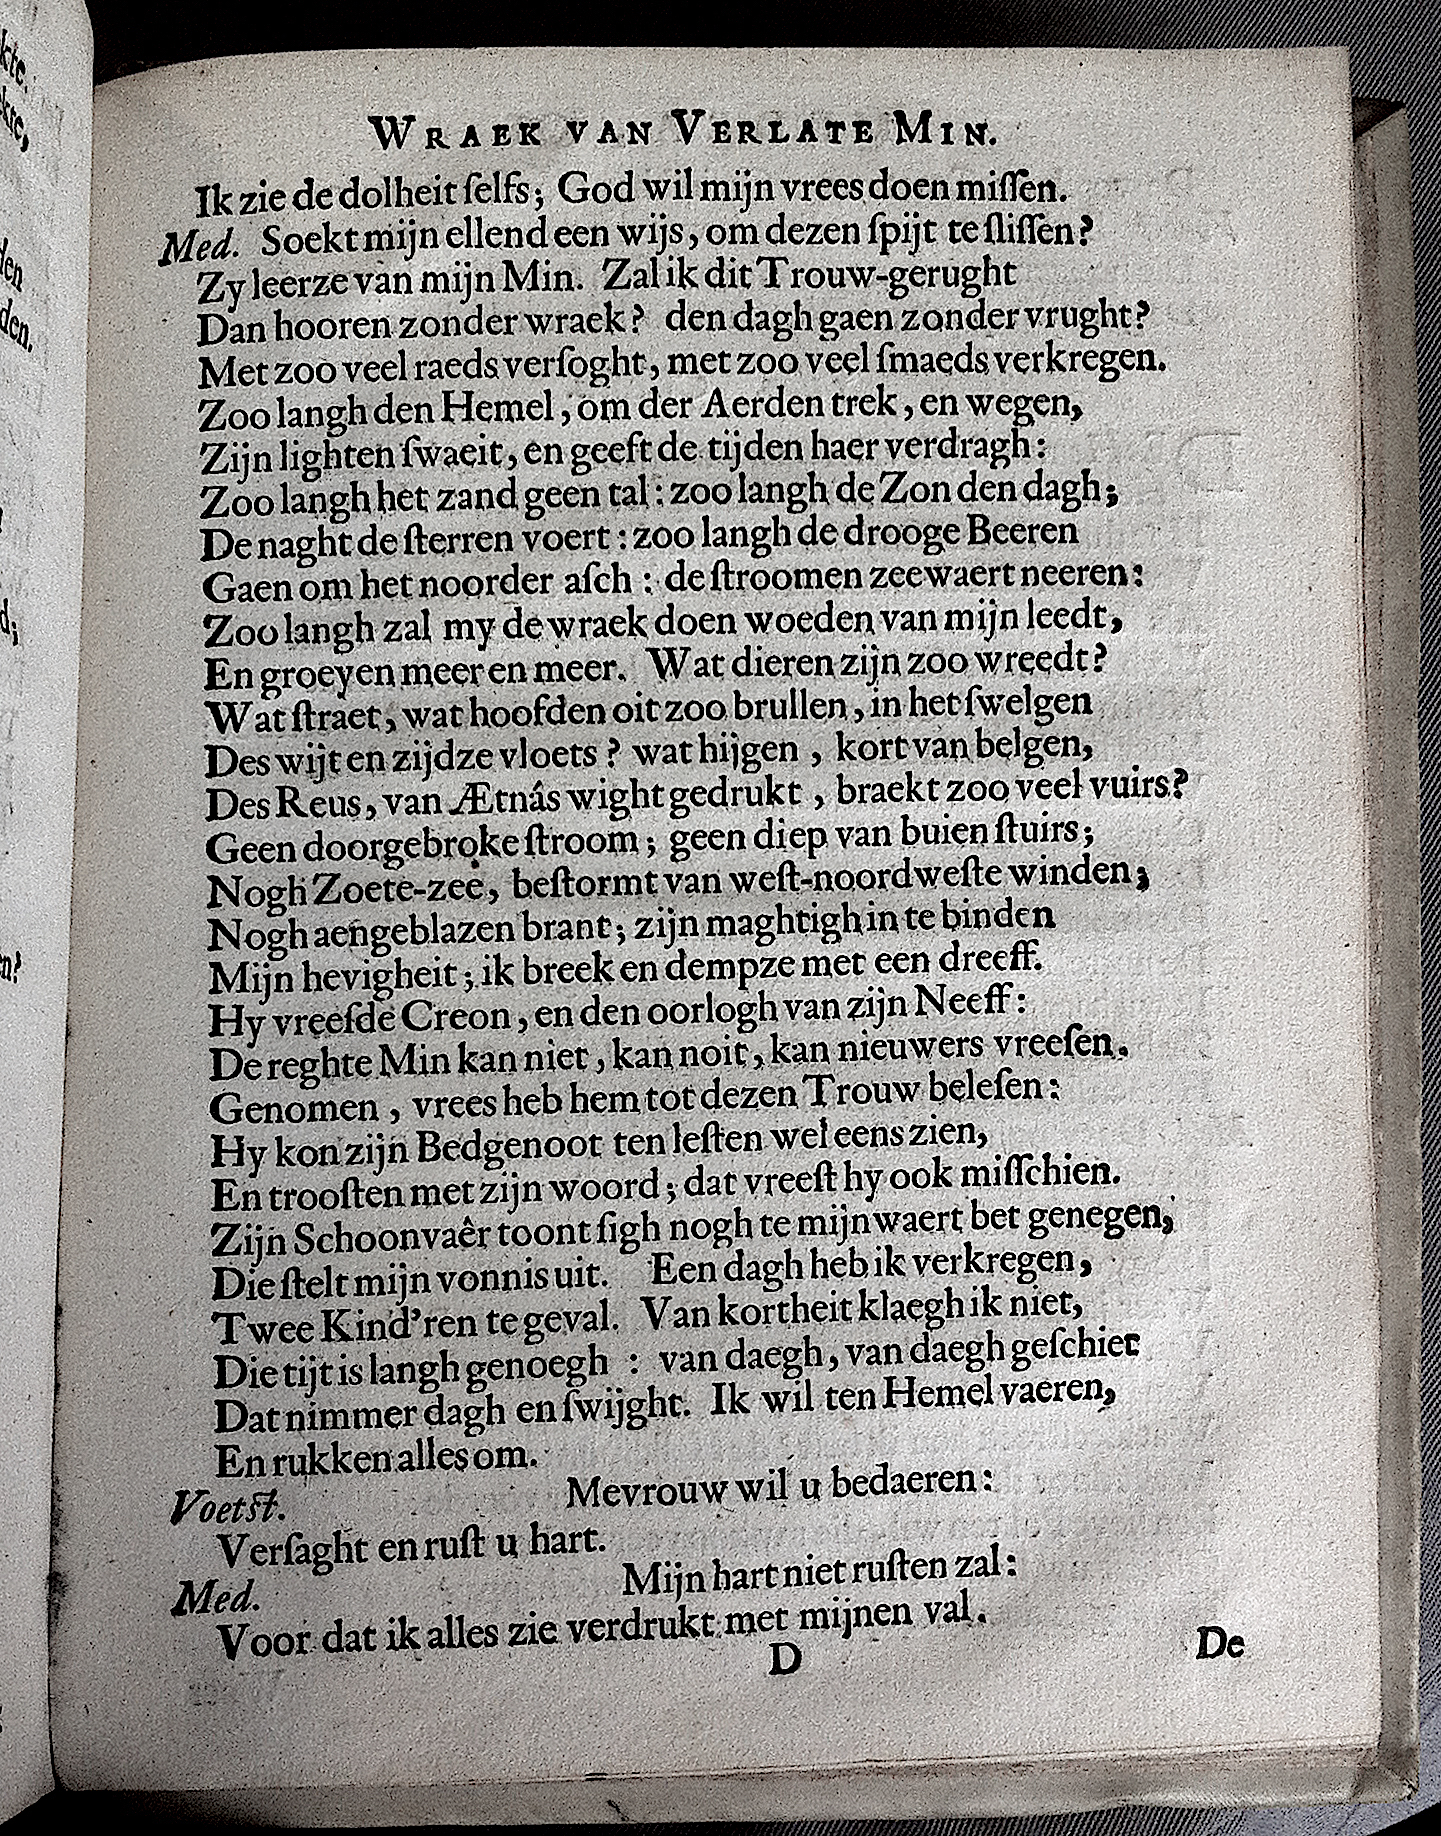 WRAEK VAN VERLATE MIN.
Ik zie de dolheit ſelfs; God wil mijn vrees doen miſſen.
Med. Soekt mijn ellend een wijs, om dezen ſpijt te ſliſſen?
Zy leerze van mijn Min. Zal ik dit Trouw-gerught
Dan hooren zonder wraek? den dagh gaen zonder vrught?
Met zoo veel raeds verſoght, met zoo veel ſmaeds verkregen.
Zoo langh den Hemel, om der Aerden trek, en wegen,
Zijn lighten ſwaeit, en geeft de tijden haer verdragh:
Zoo langh het zand geen tal: zoo langh de Zon den dagh;
De naght de ſterren voert: zoo langh de drooge Beeren
Gaen om het noorder aſch: de ſtroomen zeewaert neeren:
Zoo langh zal my de wraek doen woeden van mijn leedt,
En groeyen meer en meer. Wat dieren zijn zoo wreedt?
Wat ſtraet, wat hoofden oit zoo brullen, in het ſwelgen
Des wijt en zijdze vloets? wat hijgen, kort van belgen,
Des Reus, van Ætnâs wight gedrukt, braekt zoo veel vuirs?
Geen doorgebroke ſtroom; geen diep van buien ſtuirs;
Nogh Zoete-zee, beſtormt van weſt-noordweſte winden;
Nogh aengeblazen brant; zijn maghtigh in te binden
Mijn hevigheit; ik breek en dempze met een dreeff.
Hy vreeſde Creon, en den oorlogh van zijn Neeff:
De reghte Min kan niet, kan noit, kan nieuwers vreeſen.
Genomen, vrees heb hem tot dezen Trouw beleſen:
Hy kon zijn Bedgenoot ten leſten wel eens zien,
En trooſten met zijn woord; dat vreeſt hy ook miſſchien.
Zijn Schoonvaêr toont ſigh nogh te mijnwaert bet genegen,
Die ſtelt mijn vonnis uit. Een dagh heb ik verkregen,
Twee Kind'ren te geval. Van kortheit klaegh ik niet,
Die tijt is langh genoegh: van daegh, van daegh geſchiet
Dat nimmer dagh en ſwijght. Ik wil ten Hemel vaeren,
En rukken alles om.
Voetſt. Mevrouw wil u bedaeren:
Verſaght en ruſt u hart.
Med. Mijn hart niet ruſten zal:
Voor dat ik alles zie verdrukt met mijnen val.
D De